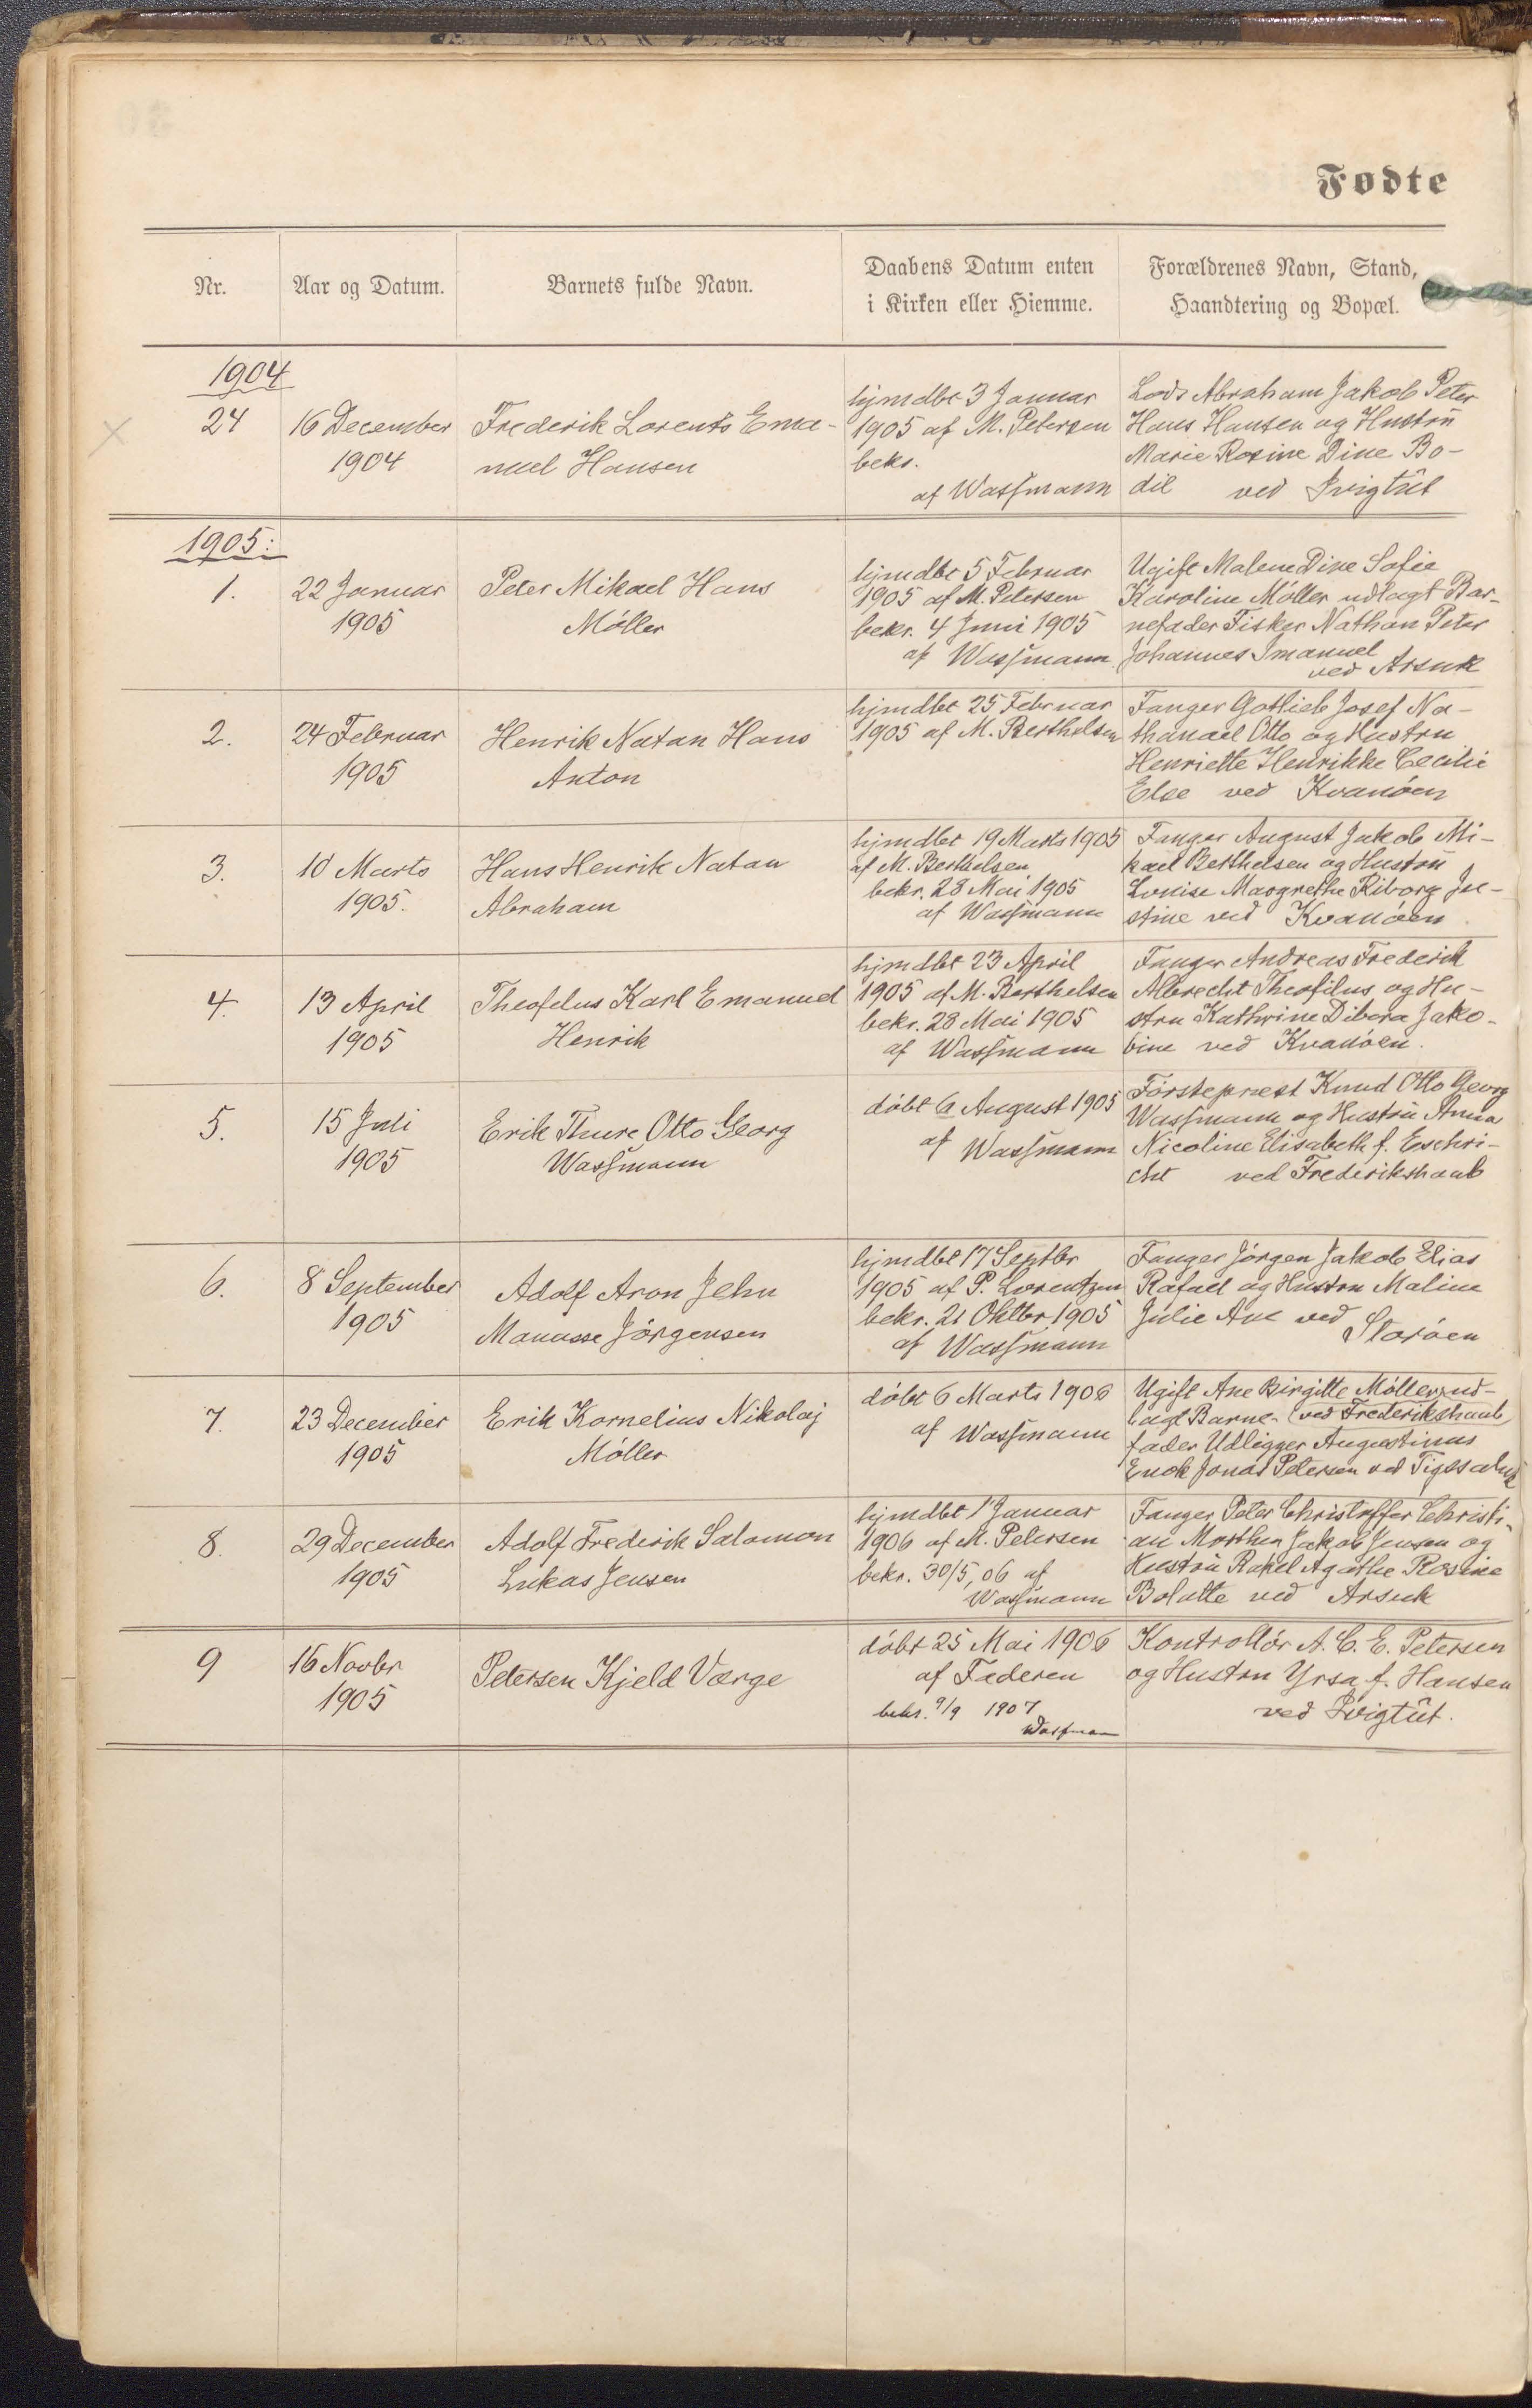 Fødte
Nr.
Aar og Datum.
Barnets fulde Navn.
Daabens Datum enten
i Kirken eller Hiemme.
Forældrenes Navn, Stand,
Haandtering og Bopæl.
1904
24
16 December
1904
Frederik Lorents Ema-
nuel Hansen
hjmdbt 3 Januar
1905 af M. Petersen
bekr.
af Wassmann
Lods Abraham Jakob Peter
Hans Hansen og Hustru
Marie Rosine Dine Bo-
dil ved Ivigtût
1905:
1.
22 Januar
1905
Peter Mikael Hans
Möller
hjmdbt 5 Februar
1905 af M. Petersen
bekr. 4 Juni 1905
af Wassmann
Ugift Malene Dine Sofie
Karoline Möller udlagt Bar-
nefader Fisker Nathan Peter
Johannes Imanuel
ved Arsuk
2.
24 Februar
1905
Henrik Natan Hans
Anton
hjmdbt 25 Februar
1905 af M. Berthelsen
Fanger Gotlieb Josef Na-
thanael Otto og Hustru
Henriette Henrikke Cecilie
Else ved Kvanöen
3.
10 Marts
1905.
Hans Henrik Natan
Abraham
hjmdbt 19 Marts 1905
af M. Berthelsen
bekr. 28 Mai 1905
af Wassmann
Fanger August Jakob Mi-
kael Berthelsen og Hustru
Lovise Margrethe Riborg Ju-
stine ved Kvanöen
4.
13 April
1905
Theofelus Karl Emanuel
Henrik
hjmdbt 23 April
1905 af M. Berthelsen
bekr. 28 Mai 1905
af Wassmann
Fanger Andreas Frederik
Albrecht Theofilus og Hu-
stru Kathrine Dibora Jako-
bine ved Kvanöen.
5.
15 Juli
1905
Erik Thure Otto Georg
Wassmann
döbt 6 August 1905
af Wassmann
Förstepræst Knud Otto Georg
Wassmann og Hustru Anna
Nicoline Elisabeth f. Eschri-
cht ved Frederikshaab
6.
8 September
1905
Adolf Aron Jehu
Manasse Jörgensen
hjmdbt 17 Septbr
1905 af P. Lorentzen
bekr. 21 Oktbr 1905
af Wassmann
Fanger Jörgen Jakob Elias
Rafael og Hustru Maline
Julie Ane ved
Storöen
7.
23 December
1905
Erik Kornelius Nikolaj
Möller
döbt 6 Marts 1906
af Wassmann
Ugift Ane Birgitte Möller, ud-
lagt Barne- (ved Frederikshaab)
fader Udligger Augustinus
Enok Jonas Petersen ved Tigssaluk
8.
29 December
1905
Adolf Frederik Salomon
Lukas Jensen
hjmdbt 1 Januar
1906 af M. Petersen
bekr. 30/5, 06 af
Wassmann
Fanger Peter Christoffer Christi-
an Morthen Jakob Jensen og
Hustru Rakel Agathe Rosine
Bolatte ved Arsuk
9
16 Novbr
1905
Petersen Kjeld Værge
döbt 25 Mai 1906
af Faderen
bekr. 9/9 1907
Wassmann
Kontrollör A. C. E. Petersen
og Hustru Yrsa f. Hansen
ved Ivigtût.